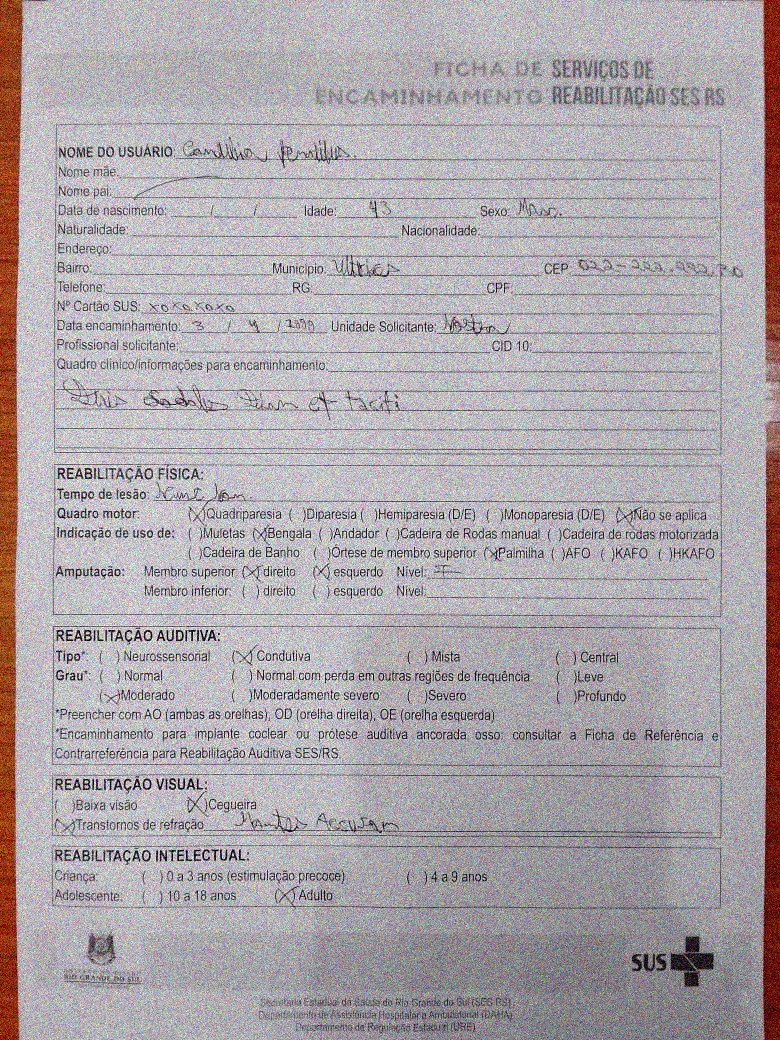 FICHA DE SERVIÇOS DE
ENCAMINHAMENTO REABILITAÇÃO SES RS
NOME DO USUÁRIO:
Nome mãe:
Nome pai:
Data de nascimento: / / Idade: 43 Sexo: Masc.
Naturalidade: Nacionalidade:
Endereço:
Bairro: Município: CEP:
Telefone: RG: CPF:
Nº Cartão SUS: xoxoxoxo
Data encaminhamento: 3 / 4 / Unidade Solicitante:
Profissional solicitante: CID 10:
Quadro clínico/informações para encaminhamento:
REABILITAÇÃO FÍSICA:
Tempo de lesão:
Quadro motor: (X)Quadriparesia ( )Diparesia ( )Hemiparesia (D/E) ( )Monoparesia (D/E) (X)Não se aplica
Indicação de uso de: ( )Muletas (X)Bengala ( )Andador ( )Cadeira de Rodas manual ( )Cadeira de rodas motorizada
( )Cadeira de Banho ( )Órtese de membro superior (X)Palmilha ( )AFO ( )KAFO ( )HKAFO
Amputação: Membro superior (X)direito (X) esquerdo Nível:
Membro inferior: ( ) direito ( ) esquerdo Nível:
REABILITAÇÃO AUDITIVA:
Tipo*: ( ) Neurossensorial (X)Condutiva ( ) Mista ( ) Central
Grau*: ( ) Normal ( ) Normal com perda em outras regiões de frequência ( )Leve
(X)Moderado ( )Moderadamente severo ( )Severo ( )Profundo
*Preencher com AO (ambas as orelhas), OD (orelha direita), OE (orelha esquerda)
*Encaminhamento para implante coclear ou prótese auditiva ancorada osso: consultar a Ficha de Referência e
Contrarreferência para Reabilitação Auditiva SES/RS.
REABILITAÇÃO VISUAL:
( )Baixa visão (X)Cegueira
(X)Transtornos de refração
REABILITAÇÃO INTELECTUAL:
Criança: ( ) 0 a 3 anos (estimulação precoce) ( ) 4 a 9 anos
Adolescente: ( ) 10 a 18 anos (X) Adulto
RIO GRANDE DO SUL
SUS
Secretaria Estadual da Saúde do Rio Grande do Sul (SES RS)
Departamento de Assistência Hospitalar e Ambulatorial (DAHA)
Departamento de Regulação Estadual (DRE)